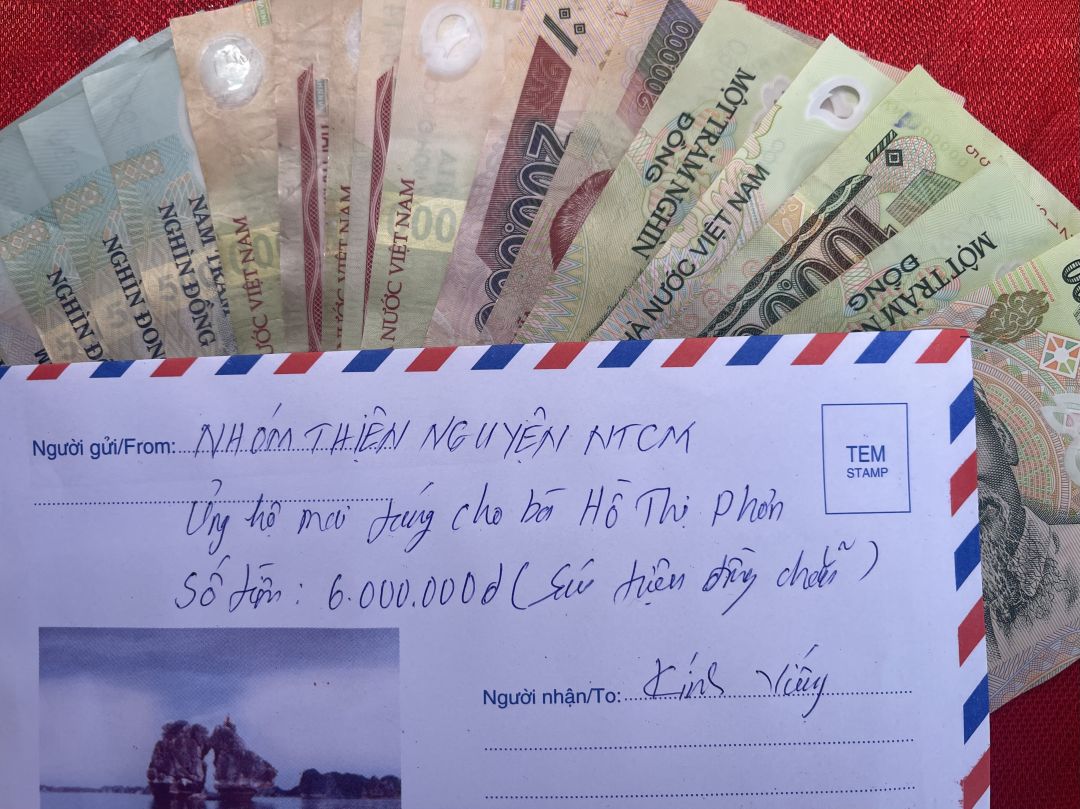 MỘT TRĂM NGHÌN
ĐỒNG
200000
NƯỚC VIỆT NAM
NĂM TRĂM
NGHÌN ĐỒNG
NGHÌN ĐỒNG
NGHÌN
VIỆT NAM
NƯỚC VIỆT NAM
MỘT TRĂM
ĐỒNG
Người gửi/From: NHÓM THIỆN NGUYỆN NTCM
TEM
STAMP
Ủng hộ mai táng cho bà Hồ Thị Phơn
Số tiền: 6.000.000đ (Sáu triệu đồng chẵn)
Người nhận/To: Kính Viếng